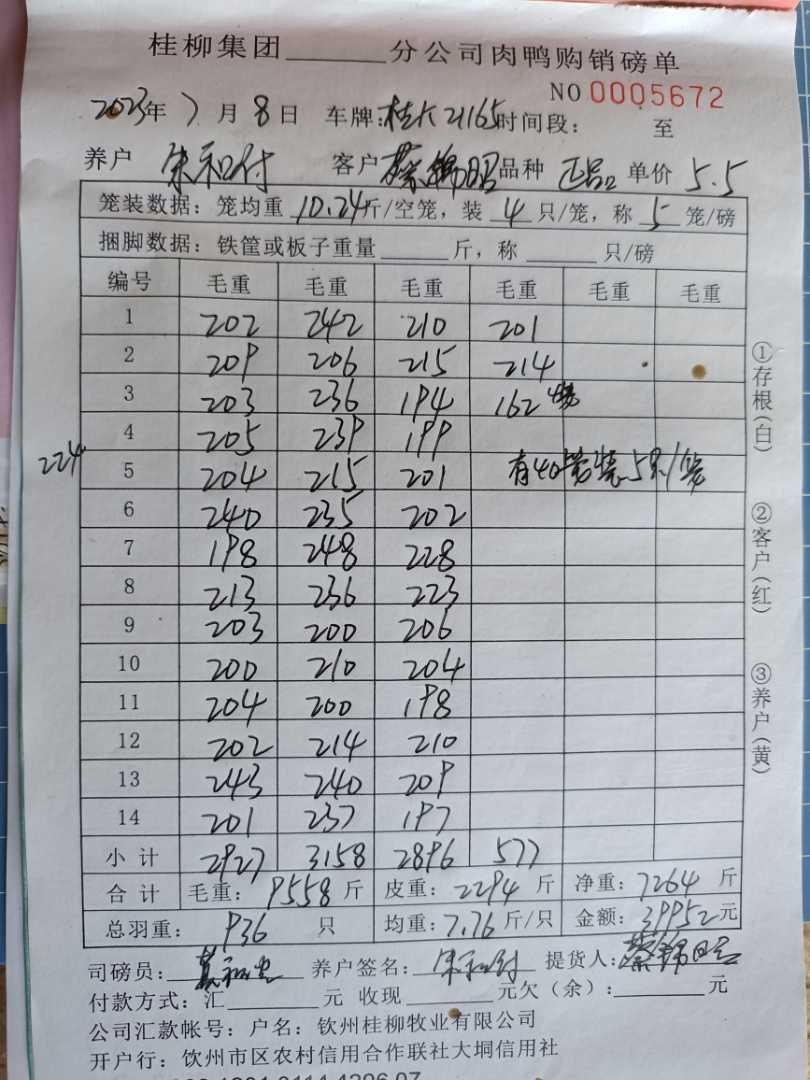 桂柳集团______分公司肉鸭购销磅单
NO 0005672
2023年 7月 8日 车牌:桂K 21165 时间段: 至
养户 朱和付 客户 蔡锦昭 品种 正品2 单价 5.5
笼装数据: 笼均重 10.24 斤/空笼, 装 4 只/笼, 称 5 笼/磅
捆脚数据: 铁筐或板子重量______斤, 称______只/磅
编号 毛重 毛重 毛重 毛重 毛重 毛重
1 202 242 210 201
2 209 206 215 214
3 203 236 194 162 4笼
4 205 239 199
224
5 204 215 201 有40笼装5只/笼
6 240 235 202
7 198 248 228
8 213 236 223
9 203 200 206
10 200 210 204
11 204 200 198
12 202 214 210
13 243 240 209
14 201 237 197
小计 2927 3158 2896 577
合计 毛重: 9558 斤 皮重: 2294 斤 净重: 7264 斤
总羽重: 936 只 均重: 7.76 斤/只 金额: 39952 元
司磅员: 养户签名: 朱和付 提货人: 蔡锦昭
付款方式: 汇______元 收现______元欠(余): ______元
公司汇款帐号: 户名: 钦州桂柳牧业有限公司
开户行: 钦州市区农村信用合作联社大垌信用社
①存根(白)
②客户(红)
③养户(黄)